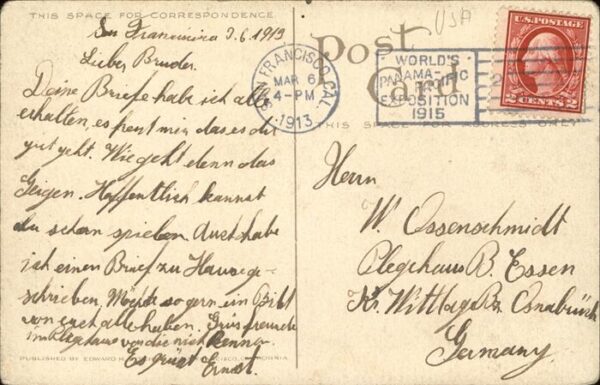 THIS SPACE FOR CORRESPONDENCE
USA
San Francisco 3.6.1913
Lieber Bruder.
Deine Briefe hab ich alle
erhalten, es freut mir das es dir
gut geht. Wie geht denn das
Geigen. Hoffentlich kannst
du schon spielen. Auch habe
ich einen Brief zu Hause ge-
schrieben, Möchte so gern ein
von euch alle haben.
im
Es grüst Ernst.
PUBLISHED BY EDWARD H. CALIFORNIA
Post
Card
SAN FRANCISCO, CAL.
MAR 6
4-PM
1913
WORLD'S
PANAMA-PACIFIC
EXPOSITION
1915
U.S. POSTAGE
2 CENTS 2
THIS SPACE FOR ADDRESS ONLY
Herrn
W. Ossenschmidt
Plegehaus B. Essen
Kr. Wittlage Bz. Osnabrück
Germany.